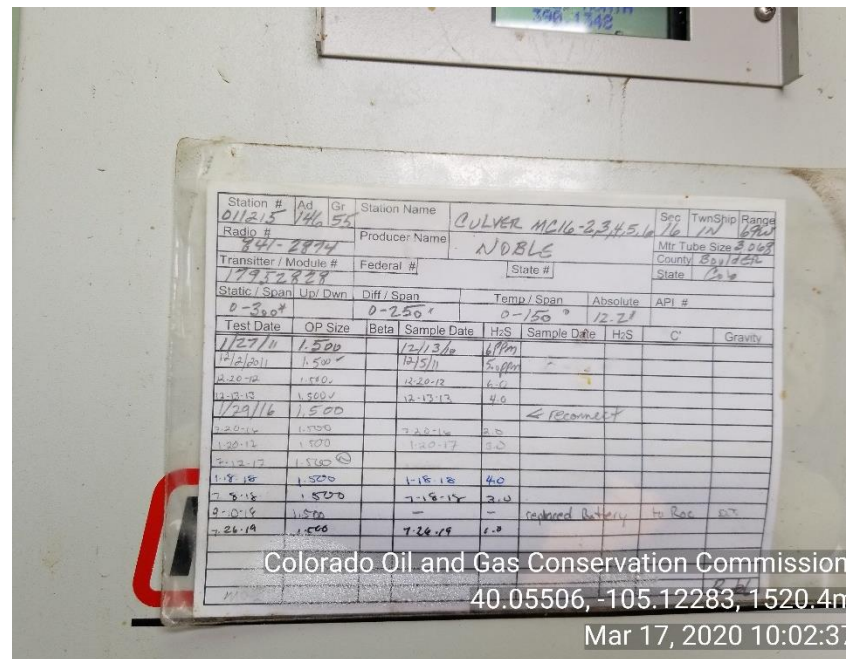 390.1342
Station # 011215 Ad 146 Gr 55 Station Name CULVER MC16-2,3,4,5,6 Sec 16 TwnShip 1N Range 69W
Radio # 841-2874 Producer Name NOBLE Mtr Tube Size 3.068
County Boulder
Transitter / Module # 17952828 Federal # State # State Colo
Static / Span Up/ Dwn Diff / Span Temp / Span Absolute API #
0-300# 0-250" 0-150° 12.2#
Test Date OP Size Beta Sample Date H2S Sample Date H2S C' Gravity
1/27/11 1.500 12/13/10 6PPm
12/2/2011 1.500 12/5/11 5.0ppm
12-20-12 1.500 12-20-12 6.0
12-13-13 1.500 12-13-13 4.0
1/29/16 1.500 ← reconnect
7-20-16 1.500 7-20-16 2.0
1-20-17 1.500 1-20-17
7-12-17 1.500
1-18-18 1.500 1-18-18 4.0
1.500 7-18-18 3.0
1.500 — — replaced Battery to Roc
7.26.19 1.500 7.26.19 1.0
Colorado Oil and Gas Conservation Commission
40.05506, -105.12283, 1520.4m
Mar 17, 2020 10:02:37